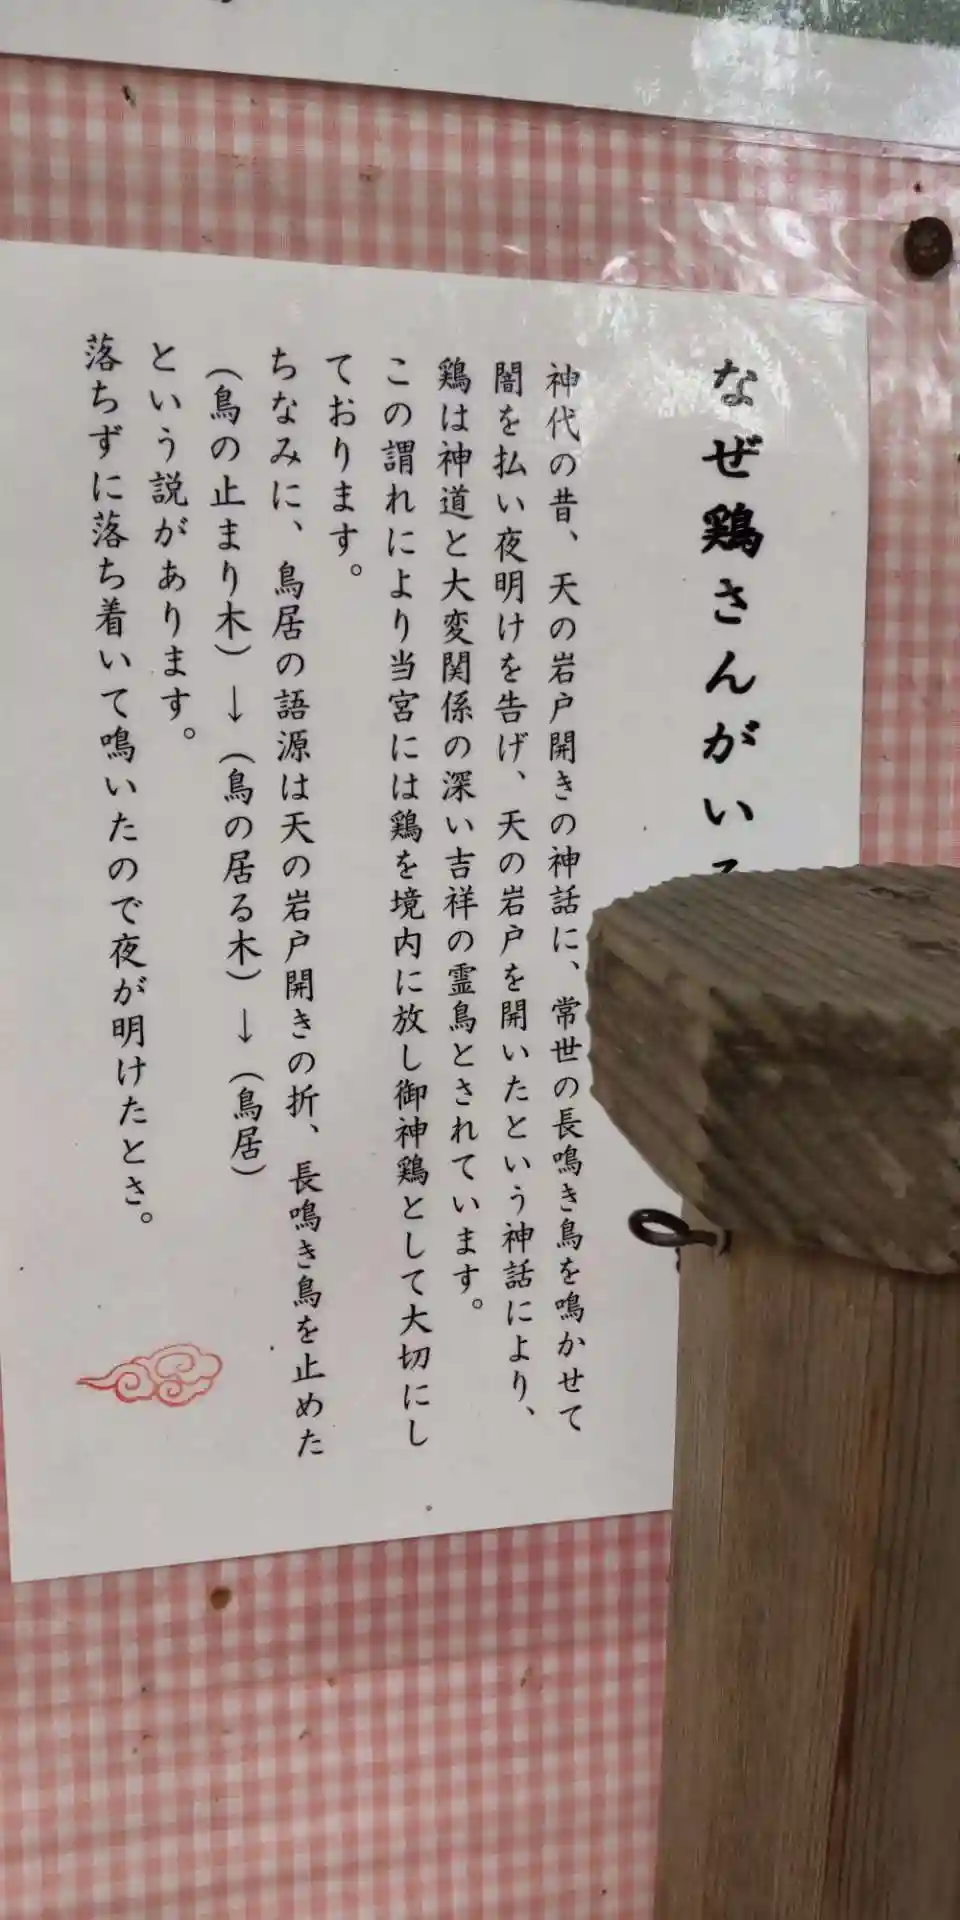 なぜ鶏さんがいる
神代の昔、天の岩戸開きの神話に、常世の長鳴き鳥を鳴かせて
闇を払い夜明けを告げ、天の岩戸を開いたという神話により、
鶏は神道と大変関係の深い吉祥の霊鳥とされています。
この謂れにより当宮には鶏を境内に放し御神鶏として大切にし
ております。
ちなみに、鳥居の語源は天の岩戸開きの折、長鳴き鳥を止めた
(鳥の止まり木)→(鳥の居る木)→(鳥居)
という説があります。
落ちずに落ち着いて鳴いたので夜が明けたとさ。